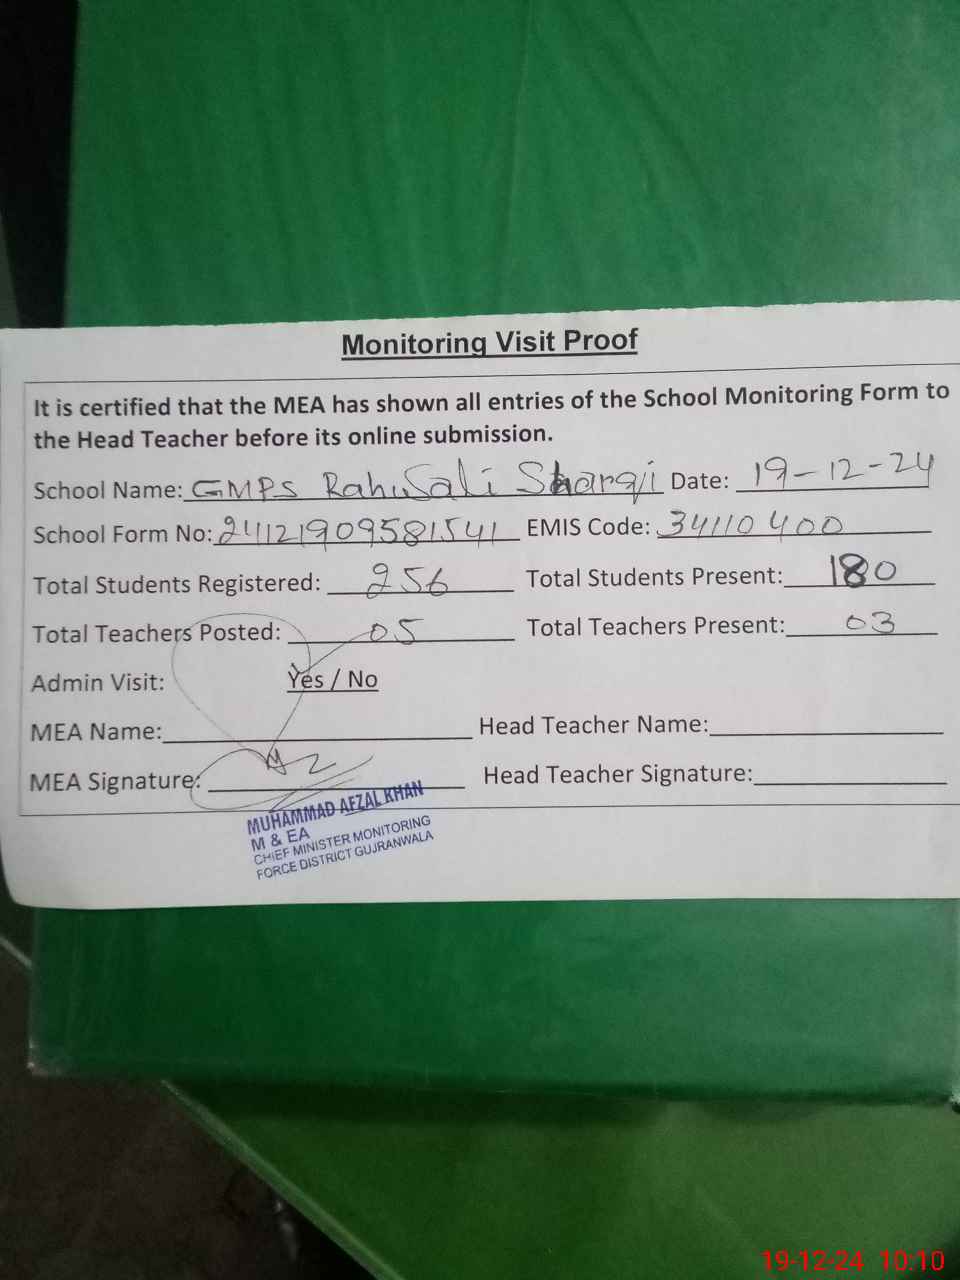 Monitoring Visit Proof
It is certified that the MEA has shown all entries of the School Monitoring Form to
the Head Teacher before its online submission.
School Name: GMPS RahwSali Sharqi Date: 19-12-24
School Form No: 241121909581541 EMIS Code: 34110400
Total Students Registered: 256 Total Students Present: 180
Total Teachers Posted: 05 Total Teachers Present: 03
Admin Visit: Yes / No
MEA Name: Head Teacher Name:
MEA Signature: Head Teacher Signature:
MUHAMMAD AFZAL KHAN
M & EA
CHIEF MINISTER MONITORING
FORCE DISTRICT GUJRANWALA
19-12-24 10:10